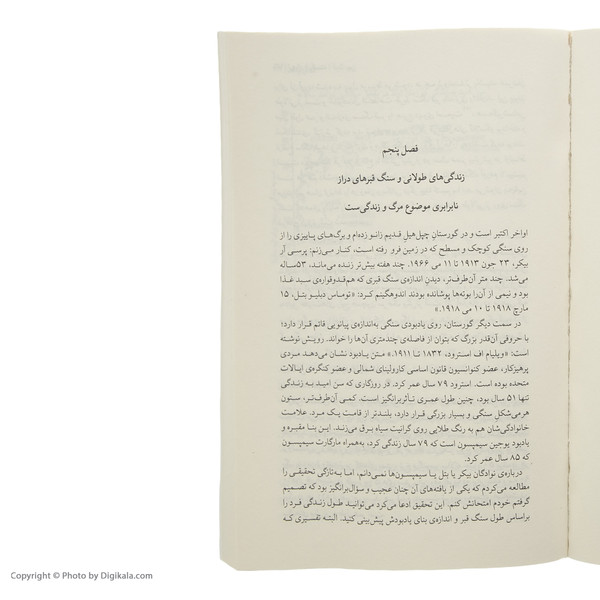 فصل پنجم
زندگی‌های طولانی و سنگ قبرهای دراز
نابرابری موضوع مرگ و زندگی‌ست
اواخر اکتبر است و در گورستان چپل‌هیل قدیم زانو زده‌ام و برگ‌های پاییزی را از
روی سنگی کوچک و مسطح که در زمین فرو رفته است، کنار می‌زنم: پرسی آر
بیکر، ۲۳ جون ۱۹۱۳ تا ۱۱ می ۱۹۶۶. چند هفته بیش‌تر زنده می‌ماند، ۵۳ساله
می‌شد. چند متر آن‌طرف‌تر، دیدن اندازه‌ی سنگ قبری که هم‌قدوقواره‌ی سبد غذا
بود و نیمی از آن‌را بوته‌ها پوشانده بودند اندوهگینم کرد: «توماس دبلیو بتل، ۱۵
مارچ ۱۹۱۸ تا ۱۰ می ۱۹۱۸.»
در سمت دیگر گورستان، روی یادبودی سنگی به‌اندازه‌ی پیانویی قائم قرار دارد؛
با حروفی آن‌قدر بزرگ که بتوان از فاصله‌ی چندمتری آن‌ها را خواند. رویش نوشته
است: «ویلیام اف استرود، ۱۸۳۲ تا ۱۹۱۱.» متن یادبود نشان می‌دهد مردی
پرهیزکار، عضو کنوانسیون قانون اساسی کارولینای شمالی و عضو کنگره‌ی ایالات
متحده بوده است. استرود ۷۹ سال عمر کرد. در روزگاری که سن امید به زندگی
تنها ۵۱ سال بود، چنین طول عمری تأثربرانگیز است. کمی آن‌طرف‌تر، ستون
هرمی‌شکل سنگی و بسیار بزرگی قرار دارد، بلندتر از قامت یک مرد. علامت
خانوادگی‌شان هم به رنگ طلایی روی گرانیت سیاه برق می‌زند. این بنا مقبره و
یادبود یوجین سیمپسون است که ۷۹ سال زندگی کرد، به‌همراه مارگارت سیمپسون
که ۸۵ سال عمر کرد.
درباره‌ی نوادگان بیکر یا بتل یا سیمپسون‌ها نمی‌دانم، اما به‌تازگی تحقیقی را
مطالعه می‌کردم که یکی از یافته‌های آن چنان عجیب و سؤال‌برانگیز بود که تصمیم
گرفتم خودم امتحانش کنم. این تحقیق ادعا می‌کرد می‌توانید طول زندگی فرد را
براساس طول سنگ قبر و اندازه‌ی بنای یادبودش پیش‌بینی کنید. البته تفسیری که
Copyright © Photo by Digikala.com